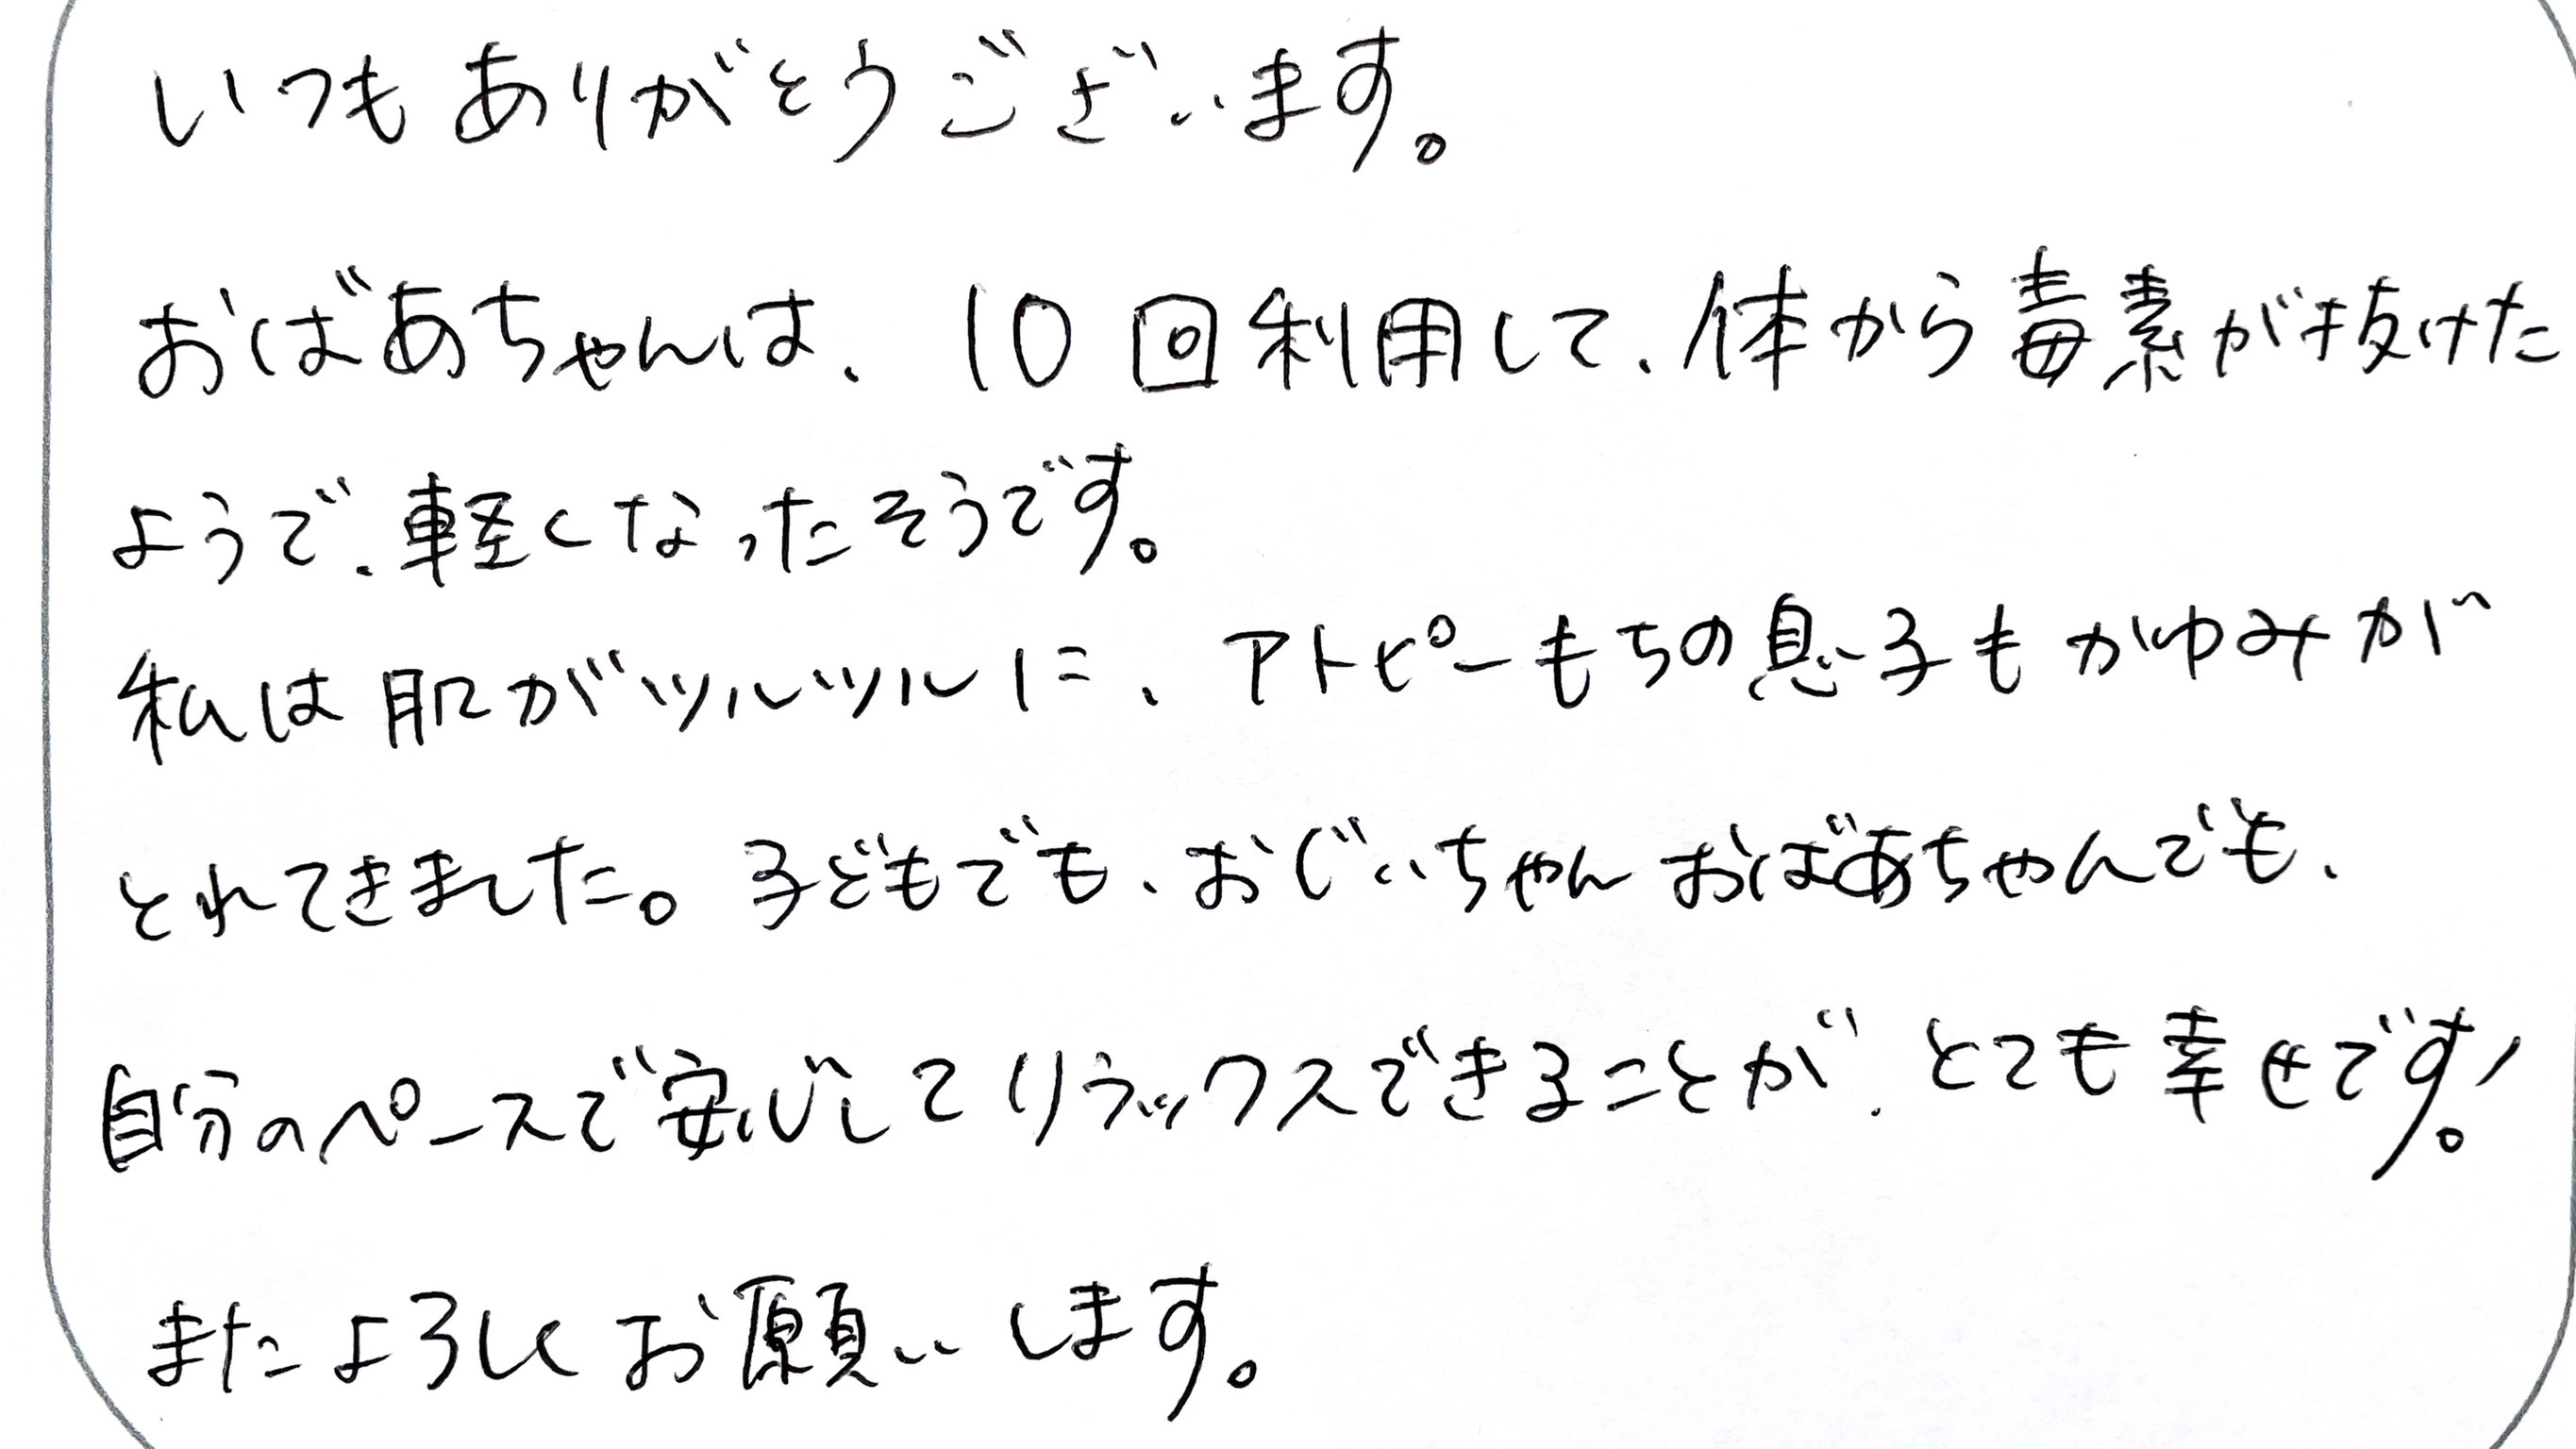 いつもありがとうございます。
おばあちゃんは、10回利用して、体から毒素が抜けた
ようで、軽くなったそうです。
私は肌がツルツルに、アトピーもちの息子もかゆみが
とれてきました。子どもでも、おじいちゃんおばあちゃんでも、
自分のペースで安心してリラックスできることが、とても幸せです!
またよろしくお願いします。